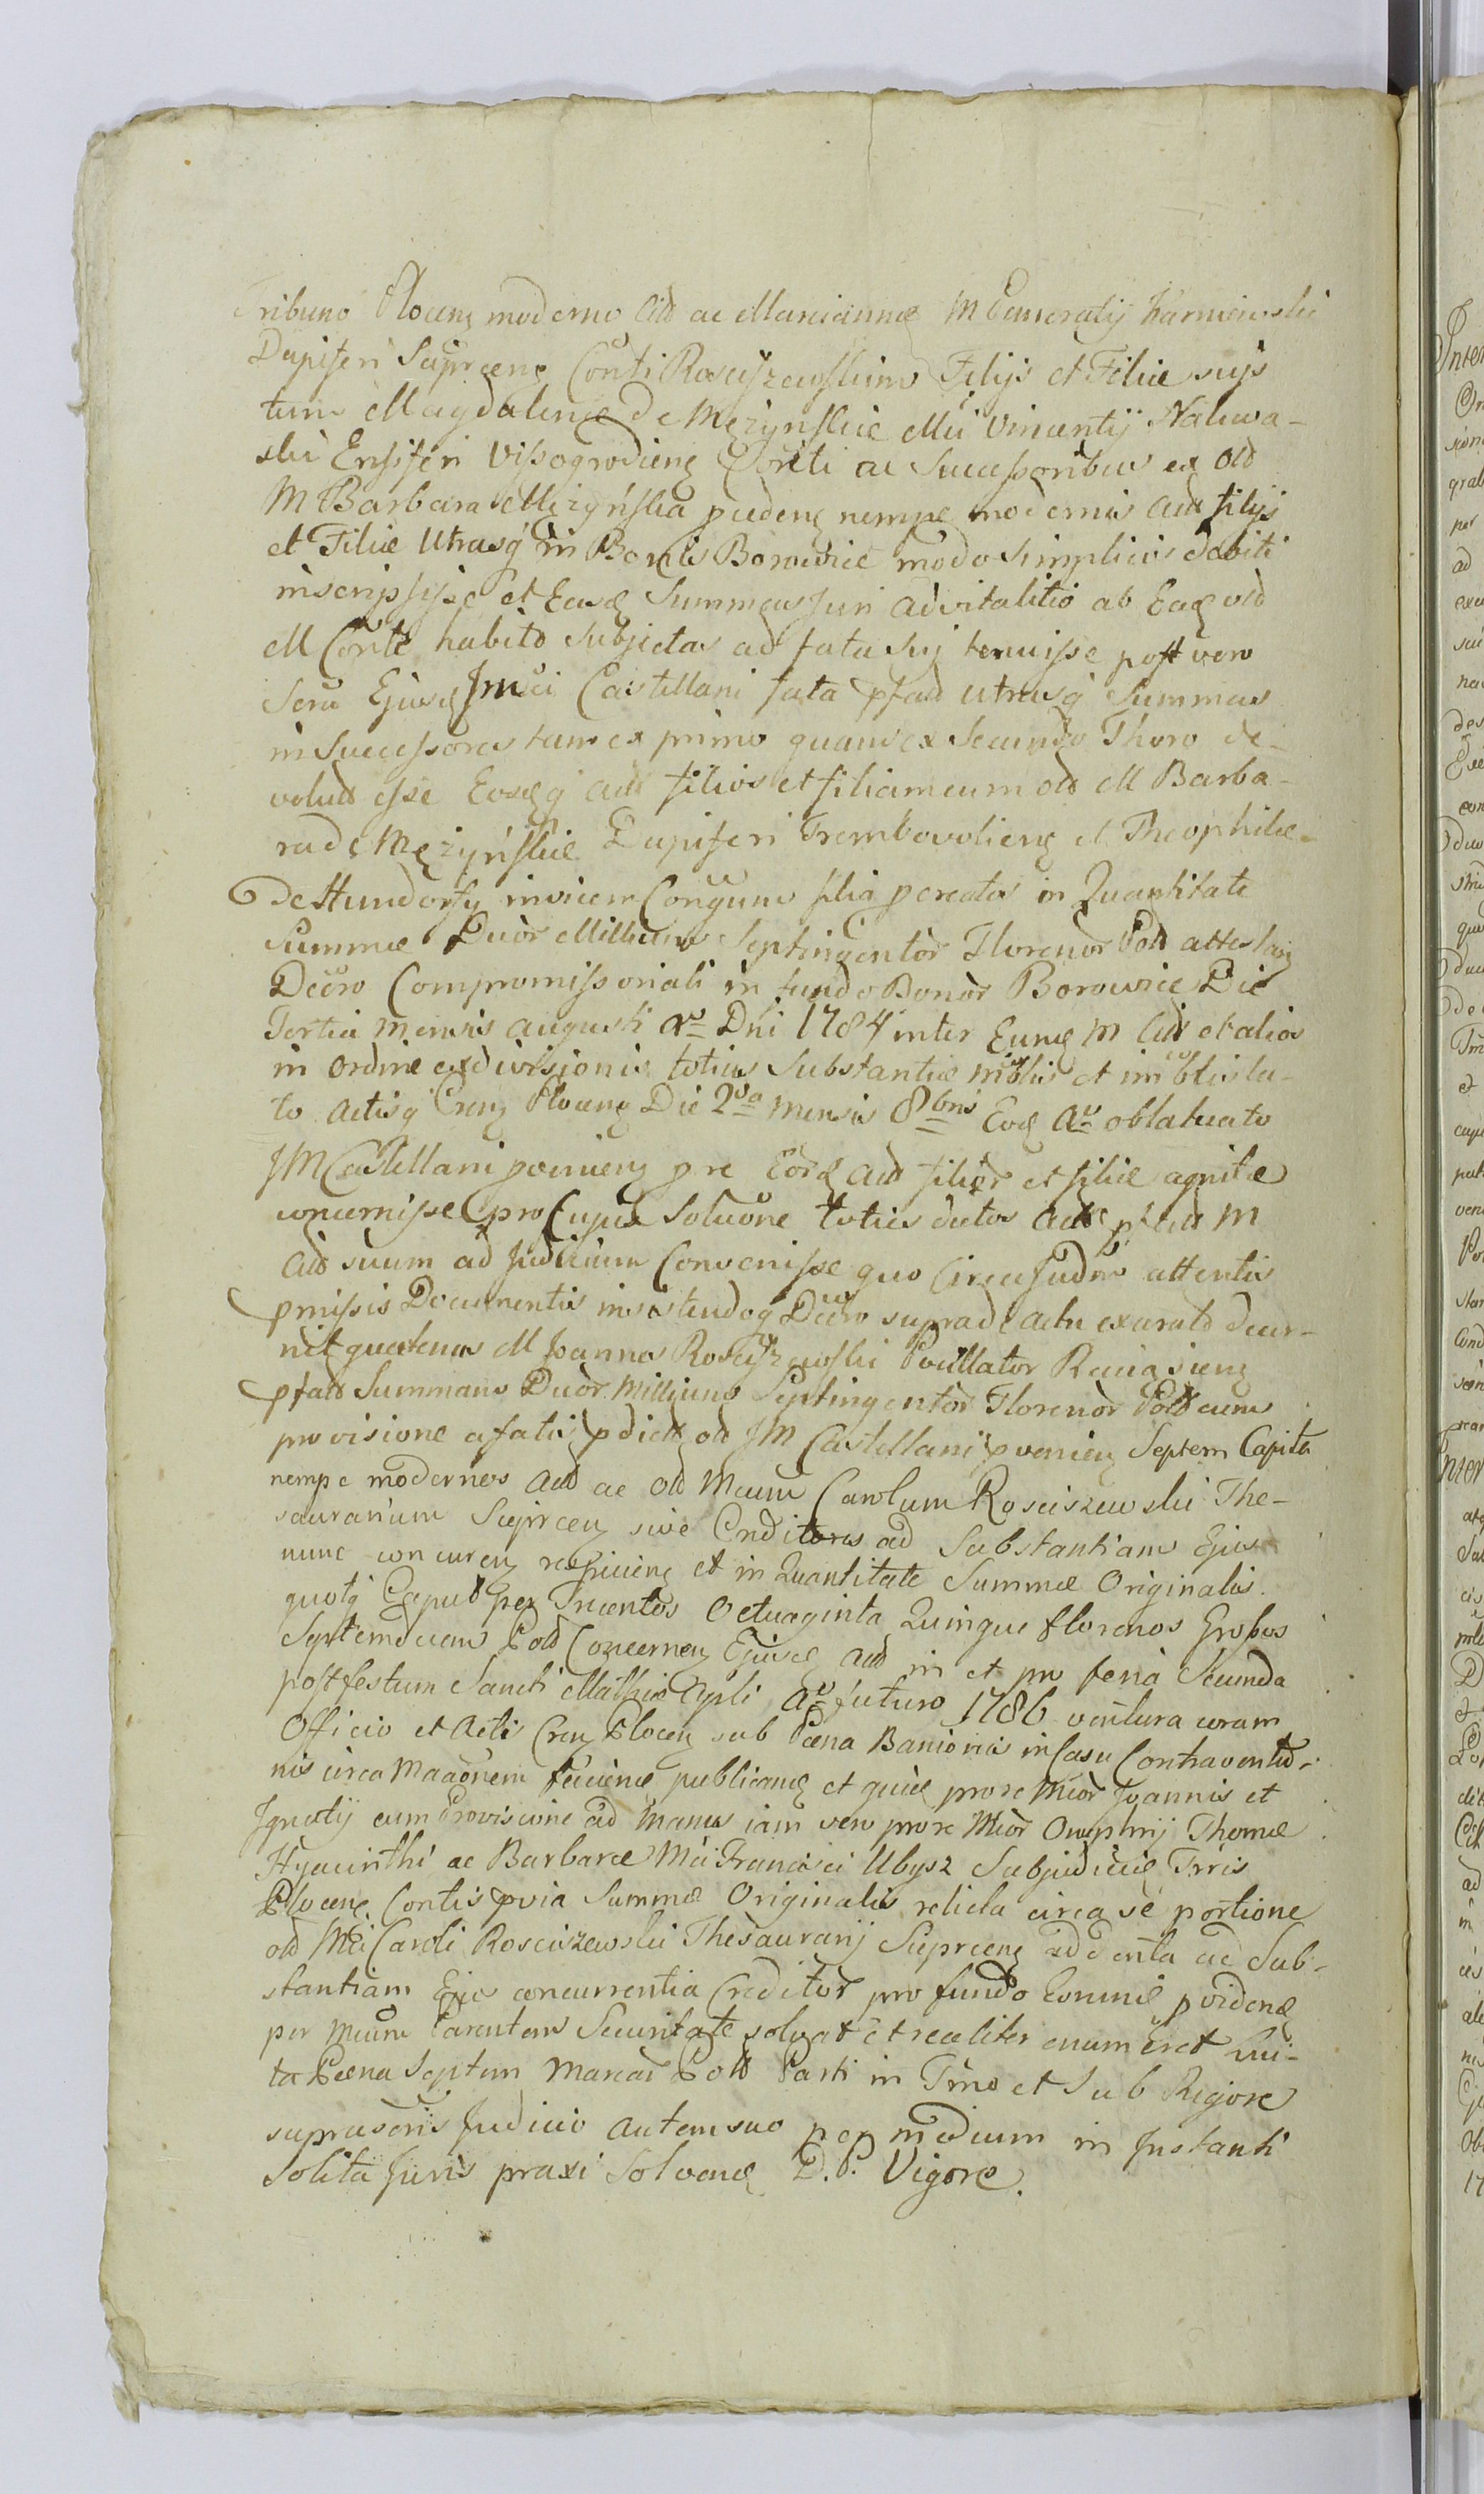 Tribuno Plocenę moderno Citt ac Mariannæ M Karniewski
Dapiferi Sieprcenę Conti Rosciszewskim Filijs et Filiæ suis
tum Magdalenæ De Mężynskie Mci Vincentij Naliwa-
ski Ensiferi Vissogrodienę Conti ac Successoribus ex old
M Barbara Mężyńska nempe modernis Actt filijs
et Filiæ Utrasq in Bonis Borowice modo simplicis debiti
inscripsisse et Easdę Summas Juri advitalitio ab Eadę old
M Conte habito subjectas ad fata sui tenuisse post vero
Sera Ejusdę JMci Castellani fata pfatt utrasq Summas
in Successores tam ex primo quam ex Secundo Thoro de-
volutt esse Eosdęq Actt filios et filiam cum old M Barba-
ra de Mężyńskie Dapiferi Trembovoliene et Theophilæ
De Hundorfy invicem Conjgum filia pcreatos in Quantitate
Summæ Duor Millium Septingentor Florenor Poll attestanę
Decro Compromissoriali in fundo Bonor Borowice Die
Tertia mensis Augusti ao Dni 1784 inter Eundę M Citt et alios
in ordine exdivisionis totius Substantiæ mblis et imblis la-
to actisq Crenę Plocenę Die 2da mensis 8bris Eodę ao oblatato
JM Castellani pvenienę p re Eordę Actt filior et filiæ agnitæ
concernisse pro Cujus Soluone toties dictos Actt pfatt M
Citt suum ad Judicium Convenisse quo circa Judm attentis
pmissis Documentis insistendoq Decro suprade actu exarato decer-
nit quatenus M Joannes Rosciszewski Pocillator Raciąsienę
pfatt Summam Duor Millium Septingentor Florenor Poll cum
provisione a fatis pdictt old JM Castellani pvenienę Septem Capita
nempe modernos Actt ac old Mcum Carolum Rosciszewski The-
saurarium Sieprcenę sive Creditores ad Substantiam Ejus
nunc concurenę respicienę et in Quantitate Summæ Originalis
quotq Caput per Trecentos Octuaginta Quinque florenos Grossos
Septemdecem Poll Concernenę Ejusdę Actt in et pro feria Secunda
post festum Sancti Mathiæ Apli ao futuro 1786 ventura coram
Officio et Actis Crenę Plocenę sub Pæna Banionis in Casu Contraventio-
nis circa Maaonem faciendę publicandę et quidę pro re Mcor Joannis et
Ignatij cum Provisione ad manus iam vero pro re Mcor Onuphrij Thomæ
Hyacinthi ac Barbaræ Mci Francisci Ubysz Subjudicis Trris
Plocenę Contis pvia Summæ Originalis relicta circa se portione
old Mci Caroli Rosciszewski Thesaurarij Sieprcenę addenta ad Sub-
stantiam Ejus concurrentia Creditor pro fundo Eorum pvidendę
per Mcum Parentem Securitate solvat et realiter enumeret lui-
ta Pæna Septem Marcar Poll Parti in Trno et Sub Rigore
suprascris Judicio autem suo per medium in Instanti
Solita Juris praxi Solvendę D.P. Vigore.